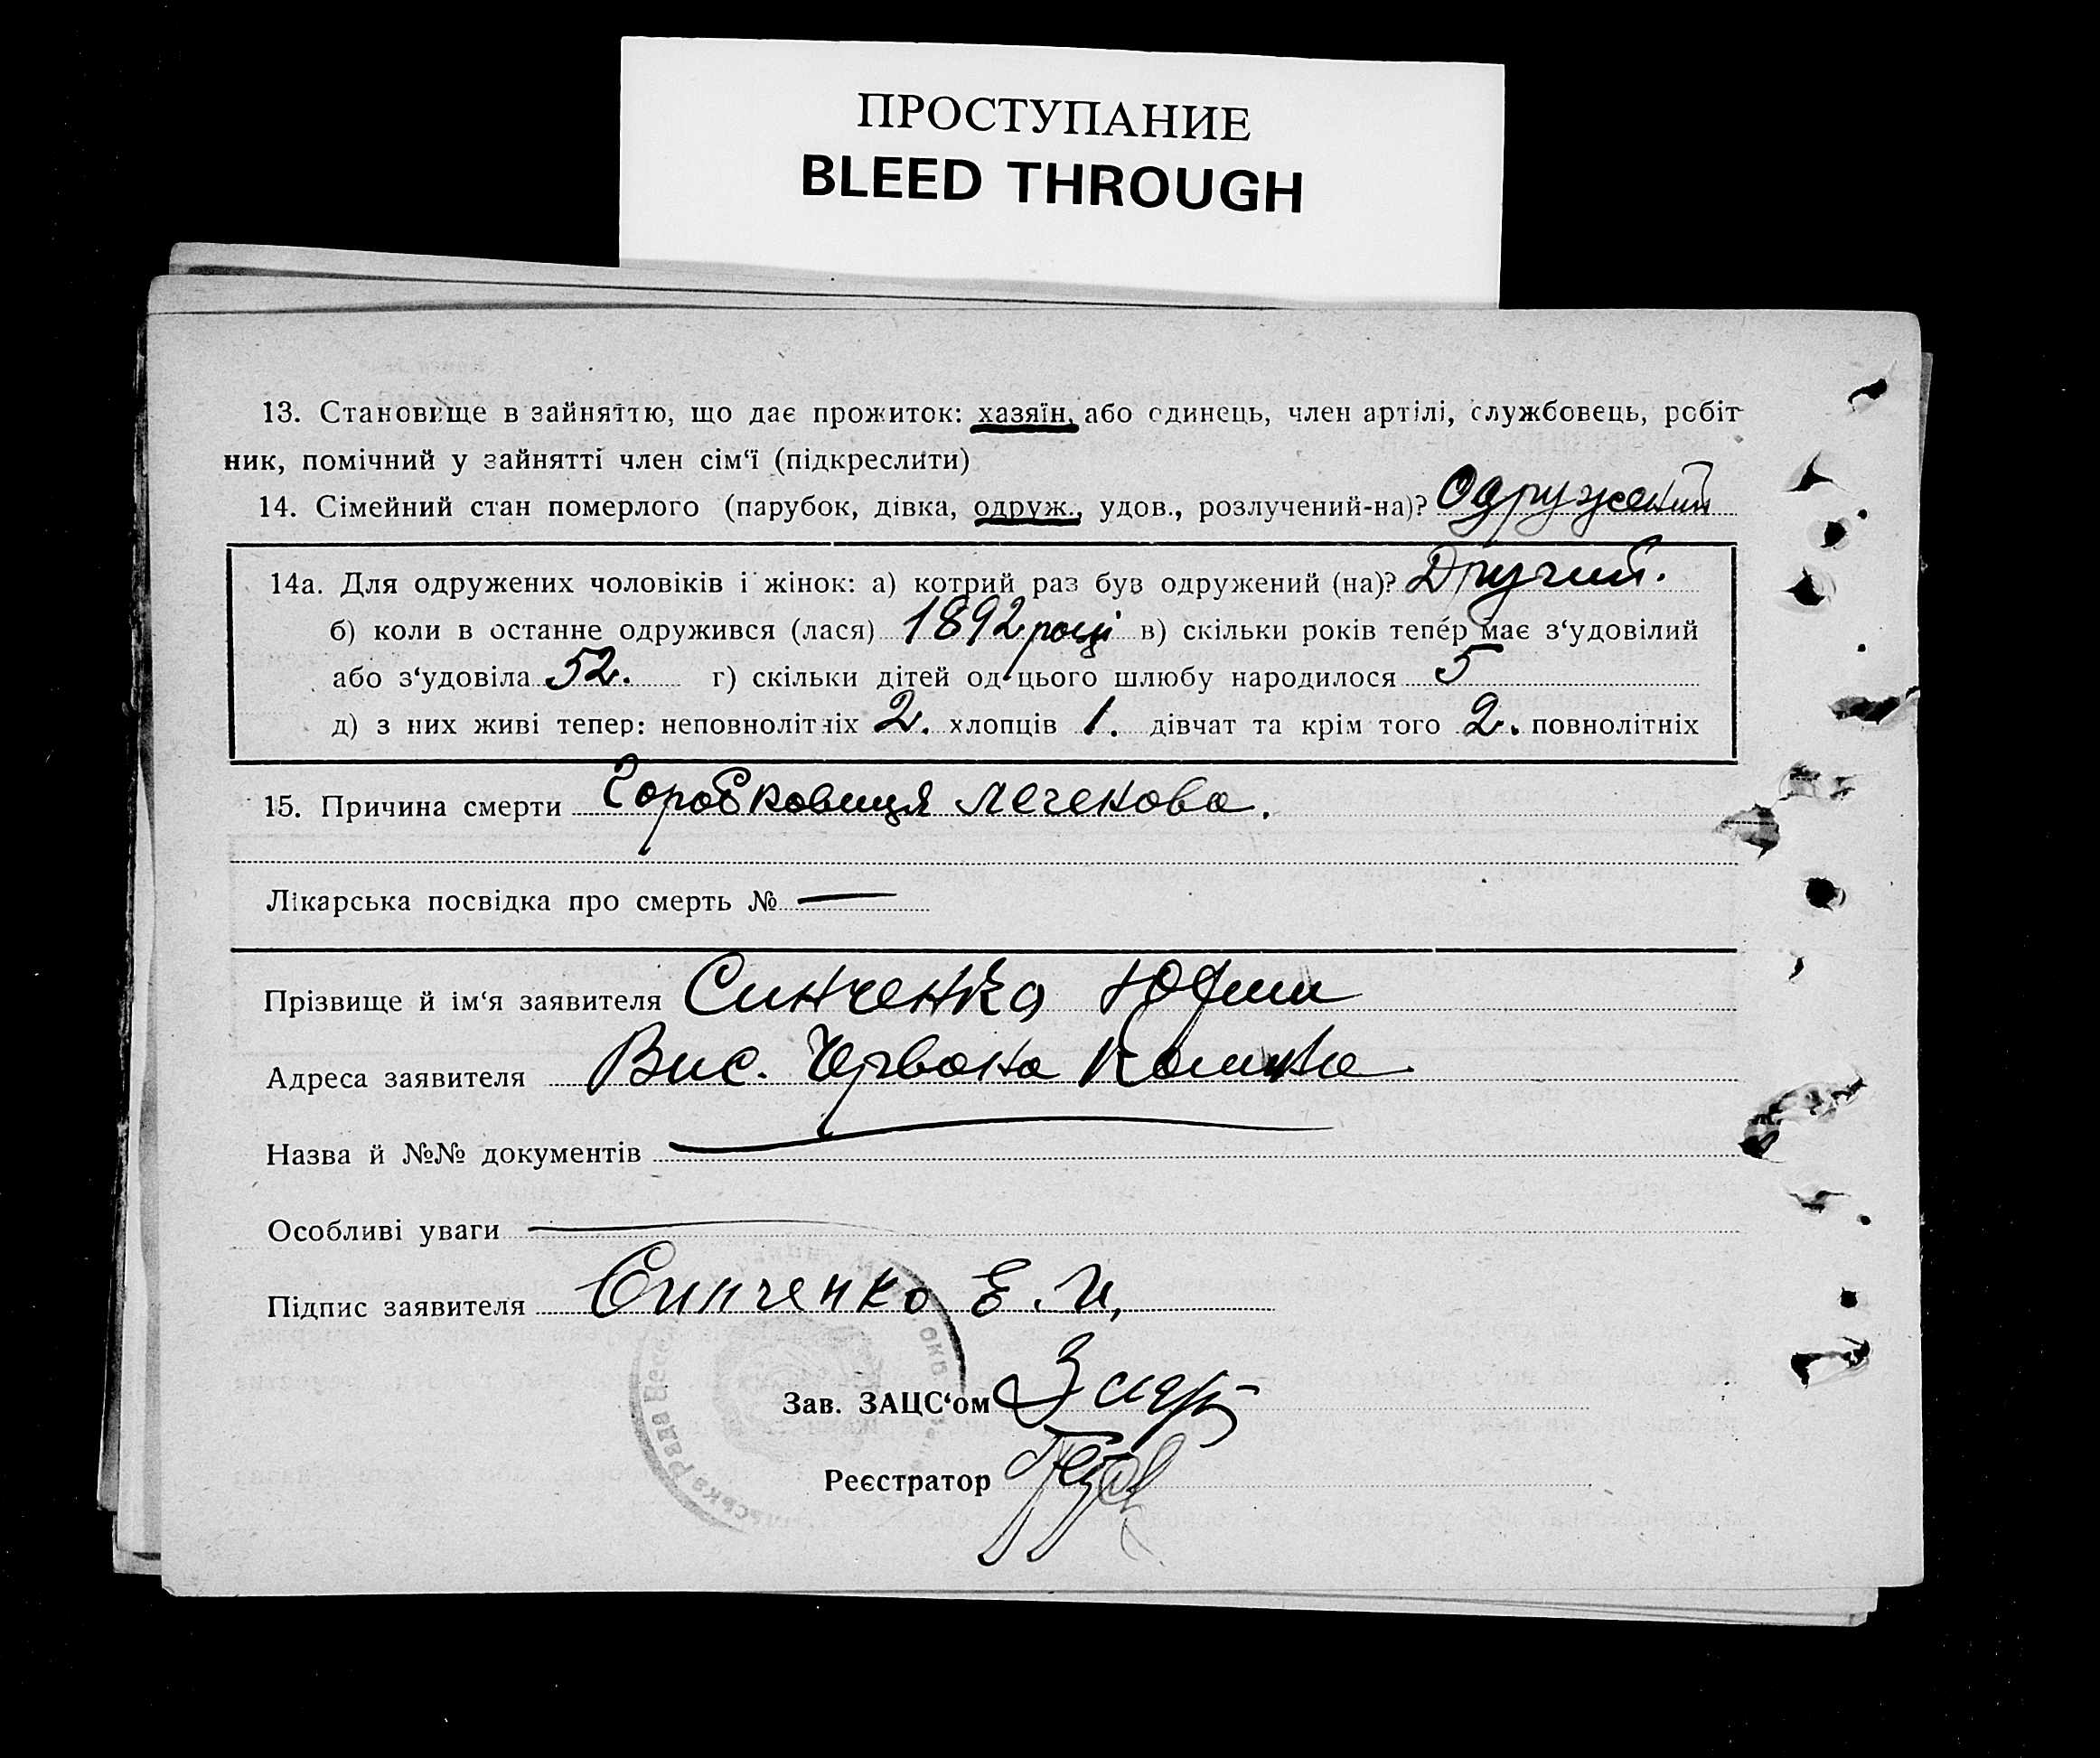 ПРОСТУПАНИЕ
BLEED THROUGH
13. Становище в зайняттю, що дає прожиток: хазяїн, або одинець, член артілі, службовець, робіт-
ник, помічний у зайнятті член сім‘ї (підкреслити)
14. Сімейний стан померлого (парубок, дівка, одруж., удов., розлучений-на)? Одружений
14а. Для одружених чоловіків і жінок: а) котрий раз був одружений (на)? Другий.
б) коли в останне одружився (лася) 1892 році в) скільки років тепер має з‘удовілий
або з‘удовіла 52. г) скільки дітей од цього шлюбу народилося 5
д) з них живі тепер: неповнолітніх 2. хлопців 1. дівчат та крім того 2. повнолітніх
15. Причина смерти легенова.
Лікарська посвідка про смерть № —
Прізвище й ім‘я заявителя Синченко
Адреса заявителя Вис. Червона
Назва й №№ документів
Особливі уваги
Підпис заявителя Синченко Е. И,
Зав. ЗАЦС‘ом
Реєстратор